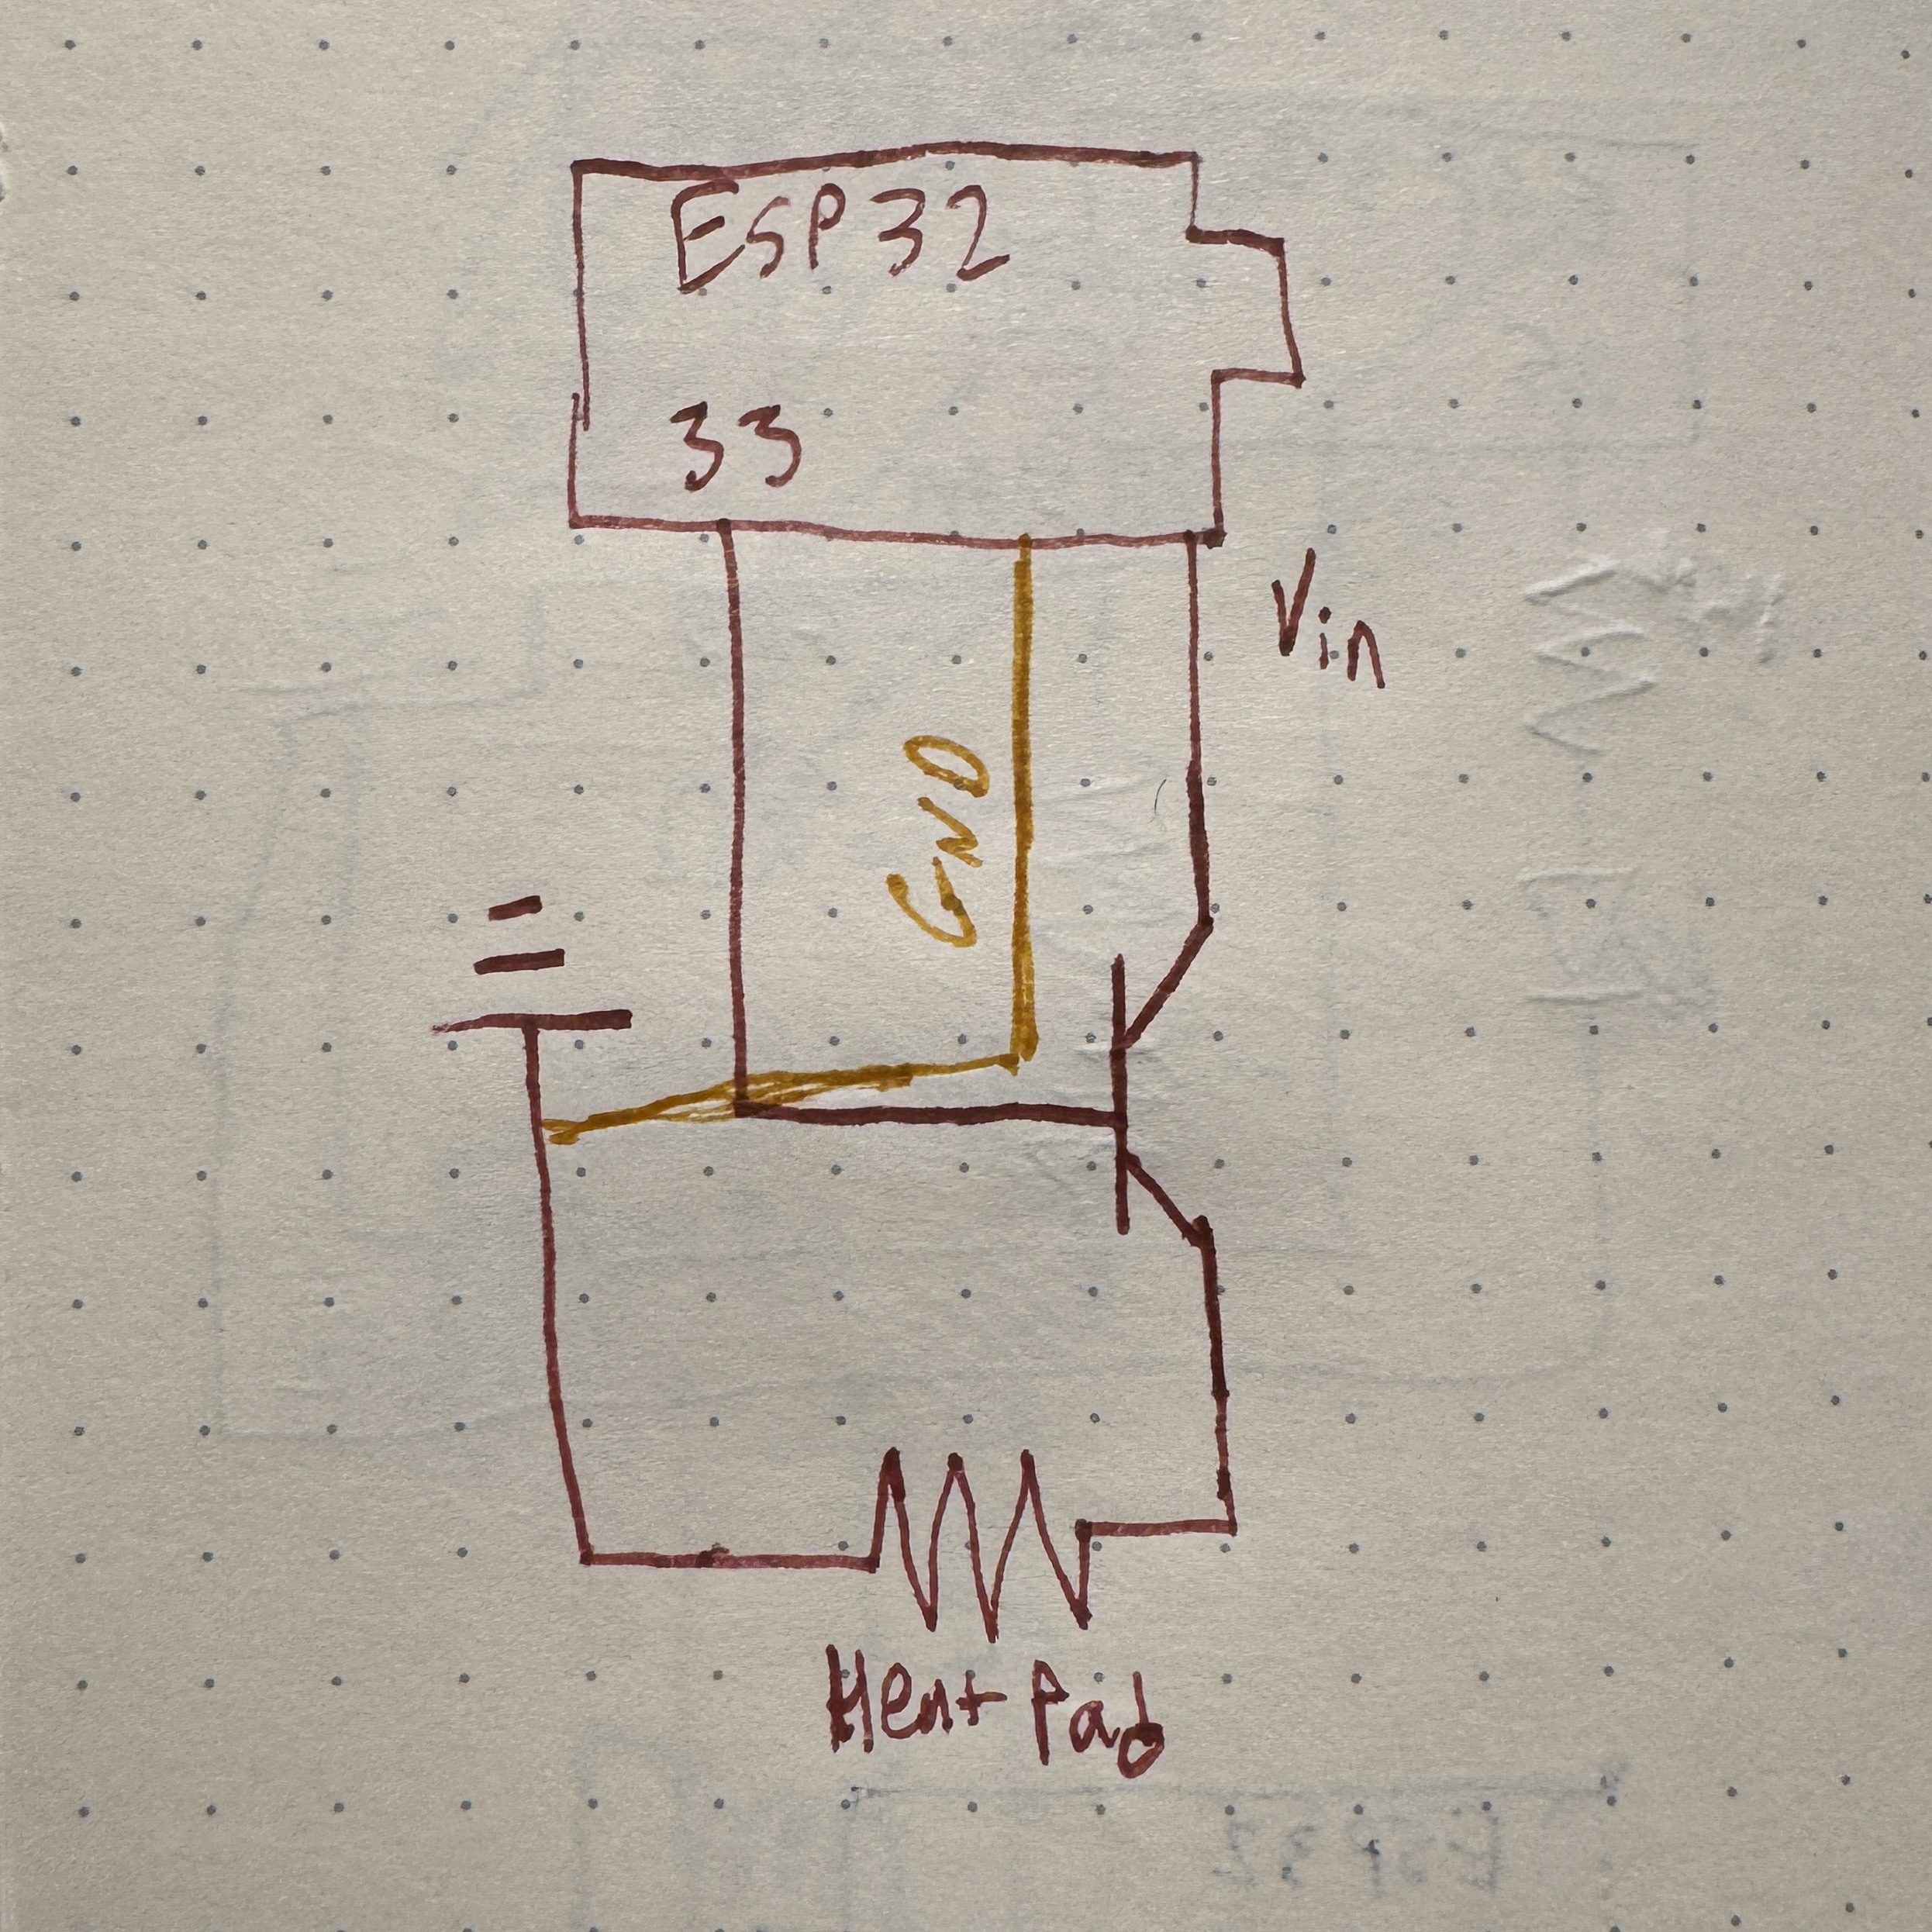 ESP32
33
Vin
GND
Heat Pad